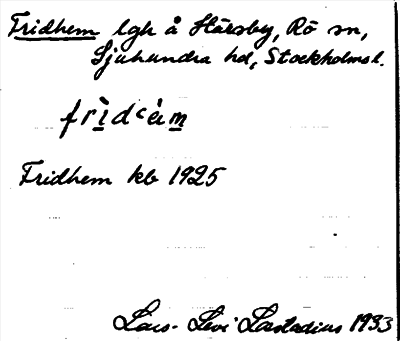 Fridhem lgh å Hårsby, Rö sn,
Sjuhundra hd, Stockholms l.
frìdcèim
Fridhem kb 1925
Lars-Levi Læstadius 1933